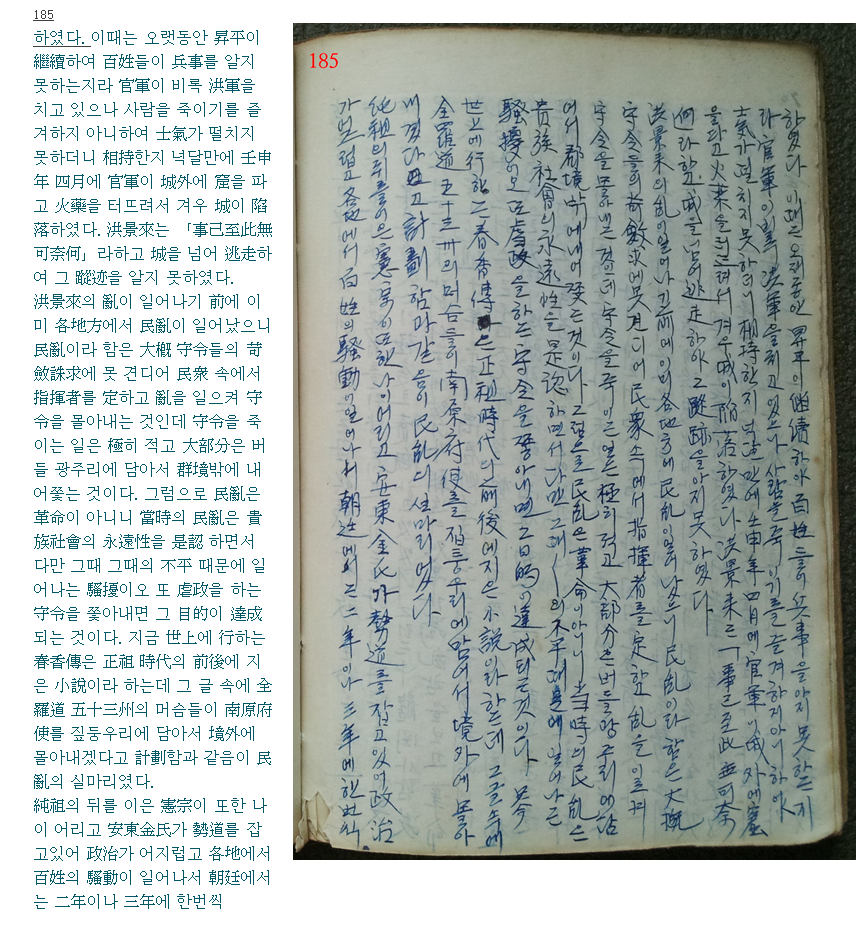 185
하였다. 이때는 오랫동안 昇平이
繼續하여 百姓들이 兵事를 알지
못하는지라 官軍이 비록 洪軍을
치고 있으나 사람을 죽이기를 즐
겨하지 아니하여 士氣가 떨치지
못하더니 相持한지 넉달만에 壬申
年 四月에 官軍이 城外에 窟을 파
고 火藥을 터프려서 겨우 城이 陷
落하였다. 洪景來는 「事己至此無
可奈何」라하고 城을 넘어 逃走하
여 그 蹤迹을 알지 못하였다.
洪景來의 亂이 일어나기 前에 이
미 各地方에서 民亂이 일어났으니
民亂이라 함은 大槪 守令들의 苛
斂誅求에 못 견디어 民衆 속에서
指揮者를 定하고 亂을 일으켜 守
令을 몰아내는 것인데 守令을 죽
이는 일은 極히 적고 大部分은 버
들 광주리에 담아서 群境밖에 내
어쫓는 것이다. 그럼으로 民亂은
革命이 아니니 當時의 民亂은 貴
族社會의 永遠性을 是認 하면서
다만 그때 그때의 不平 때문에 일
어나는 騷擾이오 또 虐政을 하는
守令을 쫓아내면 그 目的이 達成
되는 것이다. 지금 世上에 行하는
春香傳은 正祖 時代의 前後에 지
은 小說이라 하는데 그 글 속에 全
羅道 五十三州의 머슴들이 南原府
使를 짚둥우리에 담아서 境外에
몰아내겠다고 計劃함과 같음이 民
亂의 실마리였다.
純祖의 뒤를 이은 憲宗이 또한 나
이 어리고 安東金氏가 勢道를 잡
고있어 政治가 어지럽고 各地에서
百姓의 騷動이 일어나서 朝廷에서
는 二年이나 三年에 한번씩
185
하였다 이때는 오래동안 昇平이 繼續하야 百姓들이 兵事을 알지 못하는지
라 官軍이 비록 洪軍을 치고 있으나 사람을 죽이기를 즐겨하지 아니하야
士氣가 떨치지 못하더니 相持한지 넉달만에 壬申年 四月에 官軍이 城外에 窟
을 파고 火藥을 터드려서 겨우 城이 陷落하였다 洪景來는 「事已至此無可奈
何라하고 城을 넘어 逃走하야 그 蹤跡을 알지 못하였다
洪景來의 亂이 일어나기 前에 이미 各地方에 民亂이 일어났으니 民亂이라 함은 大槪
守令들의 苛斂求에 못견디어 民衆 속에서 指揮者를 定하고 亂을 일으켜
守令을 몰아내는 것인데 守令을 죽이는 일은 極히 적고 大部分은 버들광주리에 담
어서 郡境밖에 내어쫓는 것이다 그럼으로 民亂은 革命이 아니니 当時의 民亂은
貴族社會의 永遠性을 是認하면서 다만 그때〱의 不平때문에 일어나는
騷擾이오 또 虐政을 하는 守令을 쫓아내면 그 目的이 達成되는 것이다 지금
世上에 行하는 春香傳은 正祖時代의 前後에 지은 小說이라 하는데 그 글 속에
全羅道 五十三州의 머슴들이 南原府使를 짚둥우리에 담어서 境外에 몰아
내겠다고 計劃함과 같음이 民亂의 실마리였다
純祖의 뒤를 이은 憲宗이 또한 나이 어리고 安東金氏가 勢道를 잡고 있어 政治
가 어지럽고 各地에서 百姓의 騷動이 일어나서 朝廷에서는 二年이나 三年에 한번씩